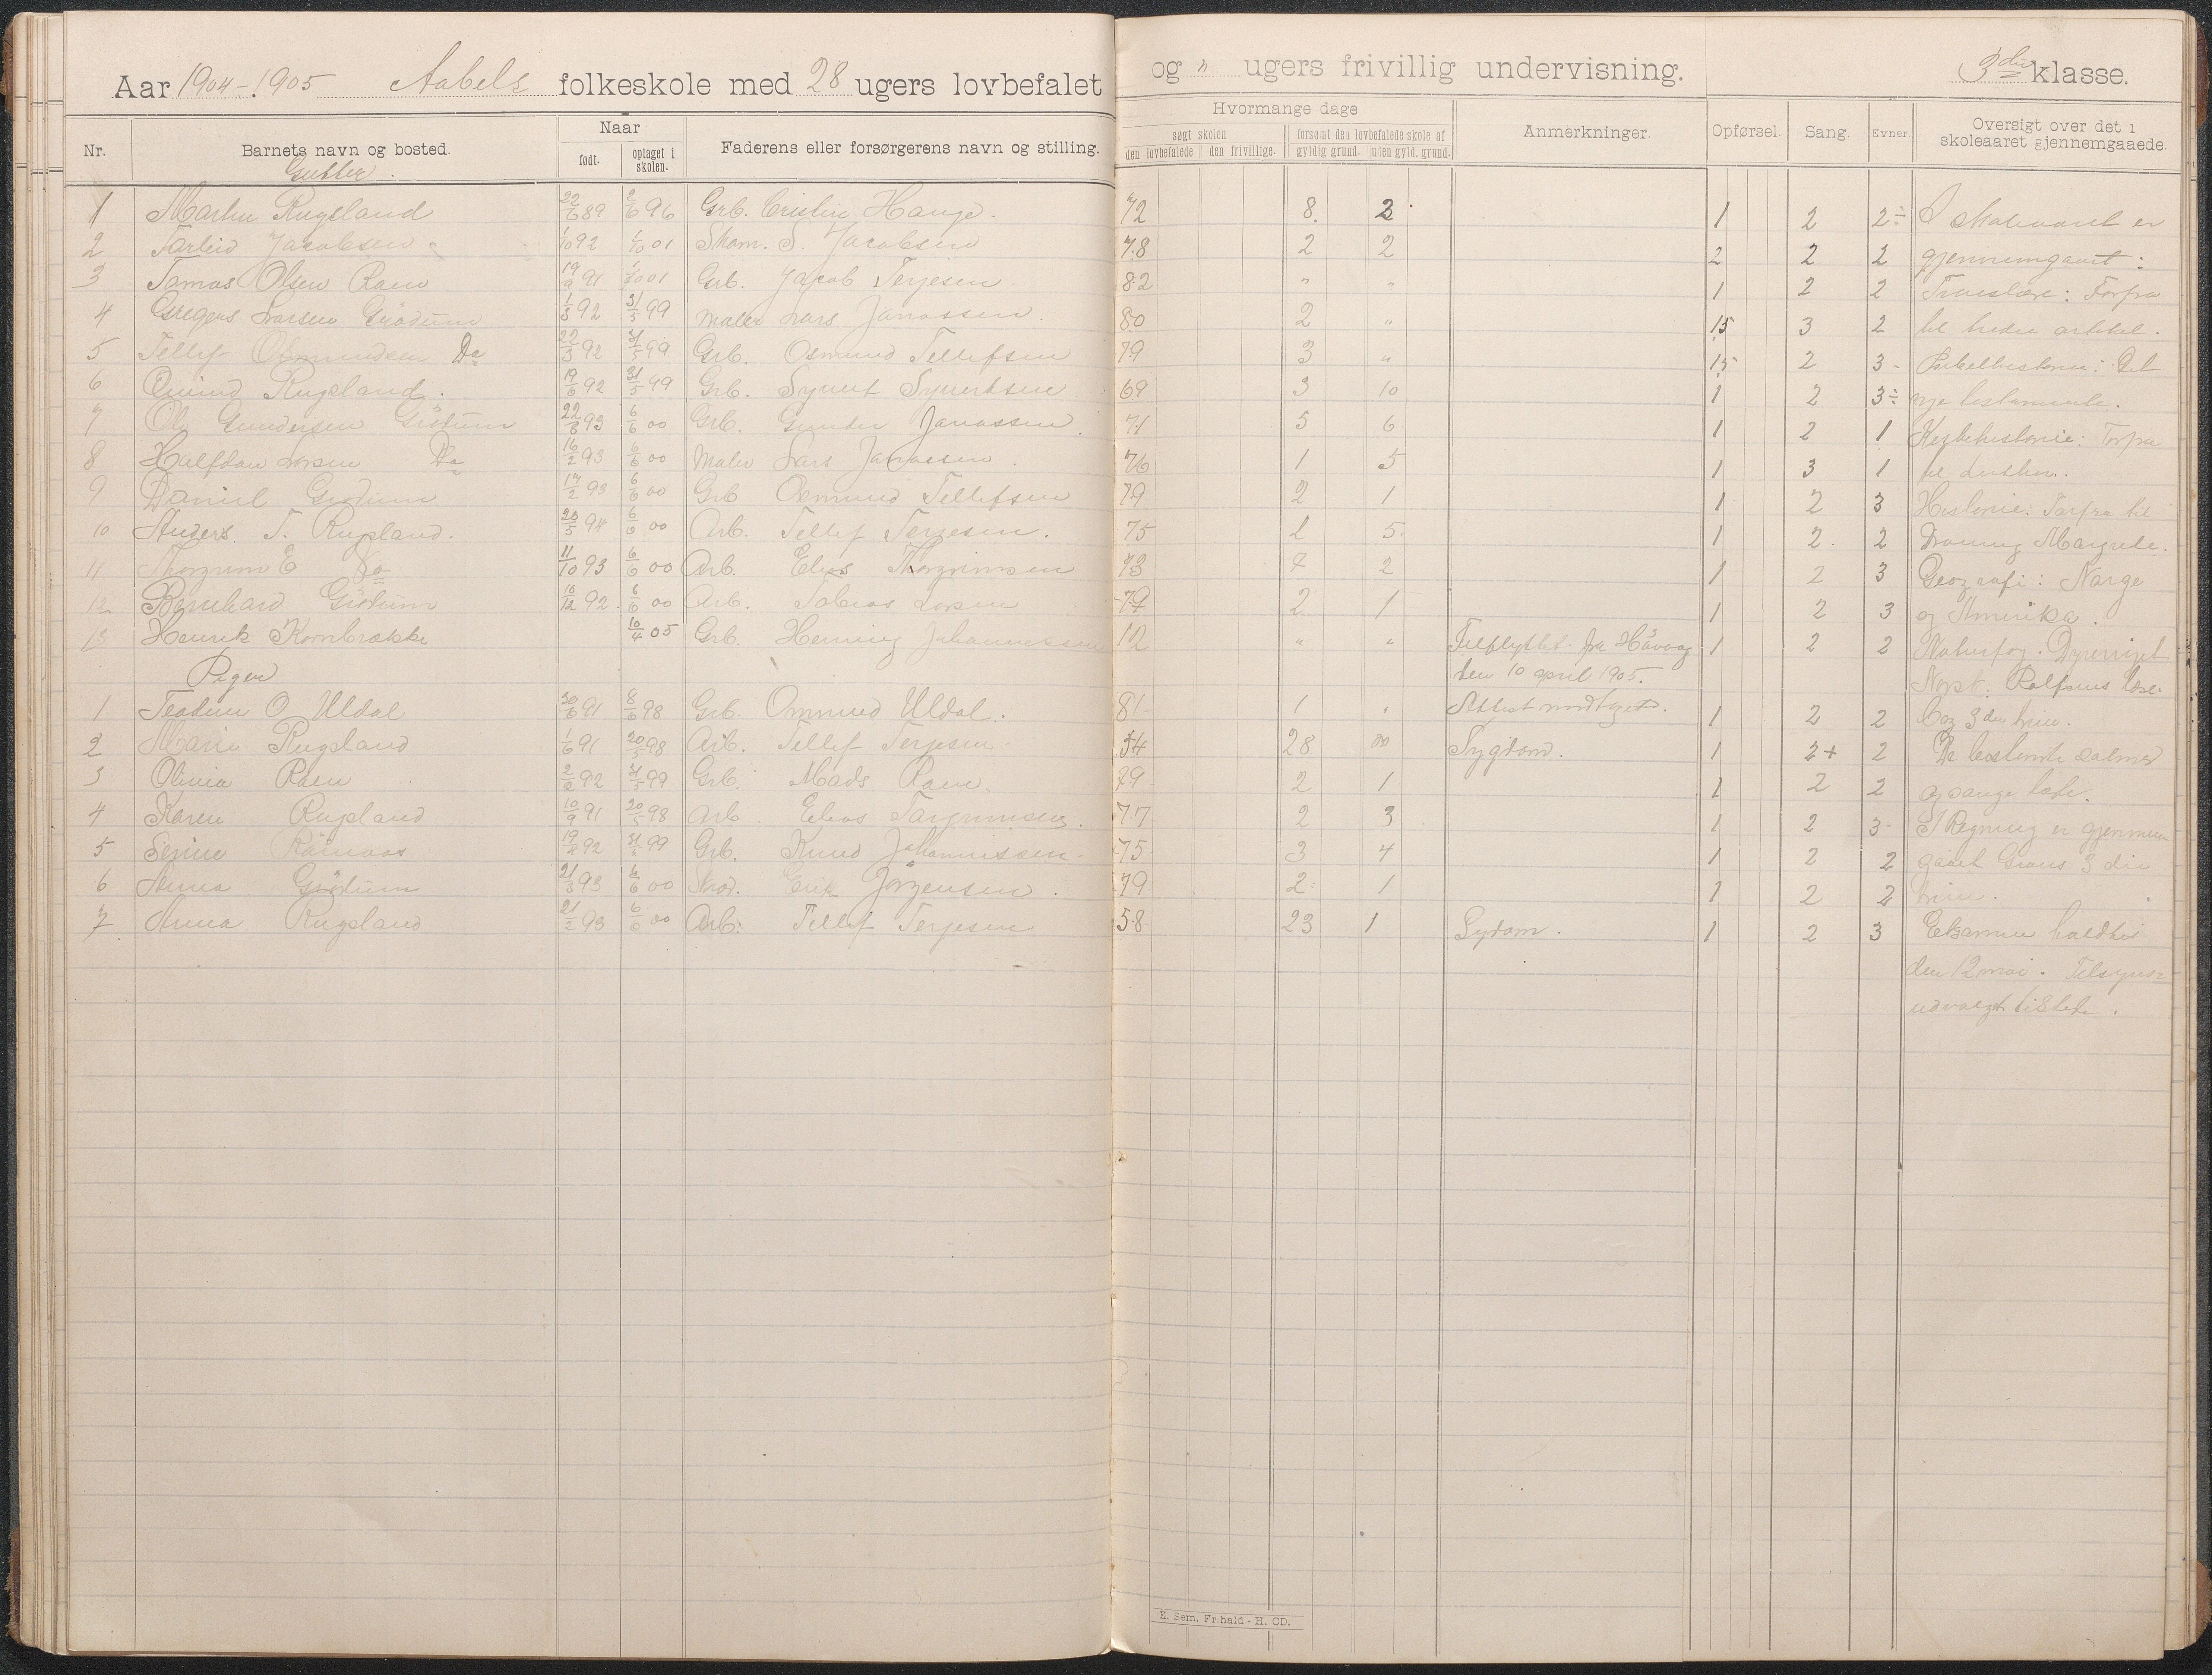 Aar 1904-1905 Aabels folkeskole med 28 ugers lovbefalet og " ugers frivillig undervisning. 3die klasse.
Nr. Barnets navn og bosted. Naar født. optaget i skolen. Faderens eller forsørgerens navn og stilling.
Hvormange dage søgt skolen den lovbefalede den frivillige. forsømt den lovbefalede skole af gyldig grund. uden gyld. grund. Anmerkninger. Opførsel. Sang. Evner Oversigt over det i skoleaaret gjennemgaaede.
Gutter.
1 Martin Rugsland 22/6 89 2/6 96 Grb. Cristen Hauge. 72 8. 2. 1 2 2÷ I skoleaaret er
2 Jacobsen 1/10 92 1/10 01 Skom. S. Jacobsen 78 2 2 2 2 2 gjennemgaaet:
3 Tomas Olsen Raen 19/9 91 1/10 01 Grb. Jacob Terjesen 82 " " 1 2 2 Troeslære: Forfra
4 Gregers Larsen Grødum 1/3 92 31/5 99 Maler Lars Janassen. 80 2 " 1,5 3 2 til tredie artikel.
5 Tellef Osmundsen Do 22/3 92 31/5 99 Grb. Osmund Tellefsen 79 3 " 1,5 2 3- Bibelhistorie: Det
6 Rugsland. 19/6 92 31/5 99 Grb. Syvert Syvertsen 69 3 10 1 2 3÷ nye testamente.
7 Ole Gundersen Grødum 22/8 93 6/6 00 Grb. Gunder Janassen 71 5 6 1 2 1 Kirkehistorie: Forfra
8 Halfdan Larsen Do 16/2 93 6/6 00 Maler Lars Janassen. 76 1 5 1 3 1 til Luther.
9 Daniel Grødum 17/2 93 6/6 00 Grb Osmund Tellefsen 79 2 1 1 2 3 Historie: Forfra til
10 Anders T. Rugsland. 20/5 94 6/6 00 Arb. Tellef Terjesen. 75 1 5. 1 2. 2 Droning Margrete.
11 Thorgrim E Do 11/10 93 6/6 00 Arb. Elias Thorgrimsen 73 7 2 1 2 3 Geografi: Norge
12 Bernhard Grødum 10/12 92. 6/6 00 Arb. Tobias Larsen 79 2 1 1 2 3 og Amerika.
13 Henrik Kornbrække 10/4 05 Grb. Henning Johannessen 12 " " Tilflyttet fra Høvaag 1 2 2 Naturfag. Dyreriget
Piger den 10 april 1905. Norsk: Rolfsens læse-
1 Teodine O Uldal 30/6 91 8/6 98 Grb. Omund Uldal. 81 1 " Attest modtget. 1 2 2 bog 3die trin.
2 Marie Rugsland 1/6 91 20/5 98 Arb. Tellef Terjesen 54 28 " Sygdom. 1 2+ 2 De bestemte salmer
3 Olivia Raen 2/2 92 31/5 99 Grb. Mads Raen. 79 2 1 1 2 2 og sange lært.
4 Karen Rugsland 10/9 91 20/5 98 Arb. Elias Torgrimsen. 77 2 3 1 2 3- I Regning er gjennem
5 92 31/5 99 Grb. Knud Johannissen 75 3 4 1 2 2 gaaet 3die
6 Anna Grødum 21/3 93 6/6 00 Erik Jørgensen. 79 2 1 1 2 2 trin.
7 Anna Rugsland 21/2 93 6/6 00 Arb. Tellef Terjesen 58 23 1 Sydom. 1 2 3 Eksamen holdtes
den 12 mai. Tilsyns=
udvalget tilstede.
E. Sem. Fr.hald - H. CD.